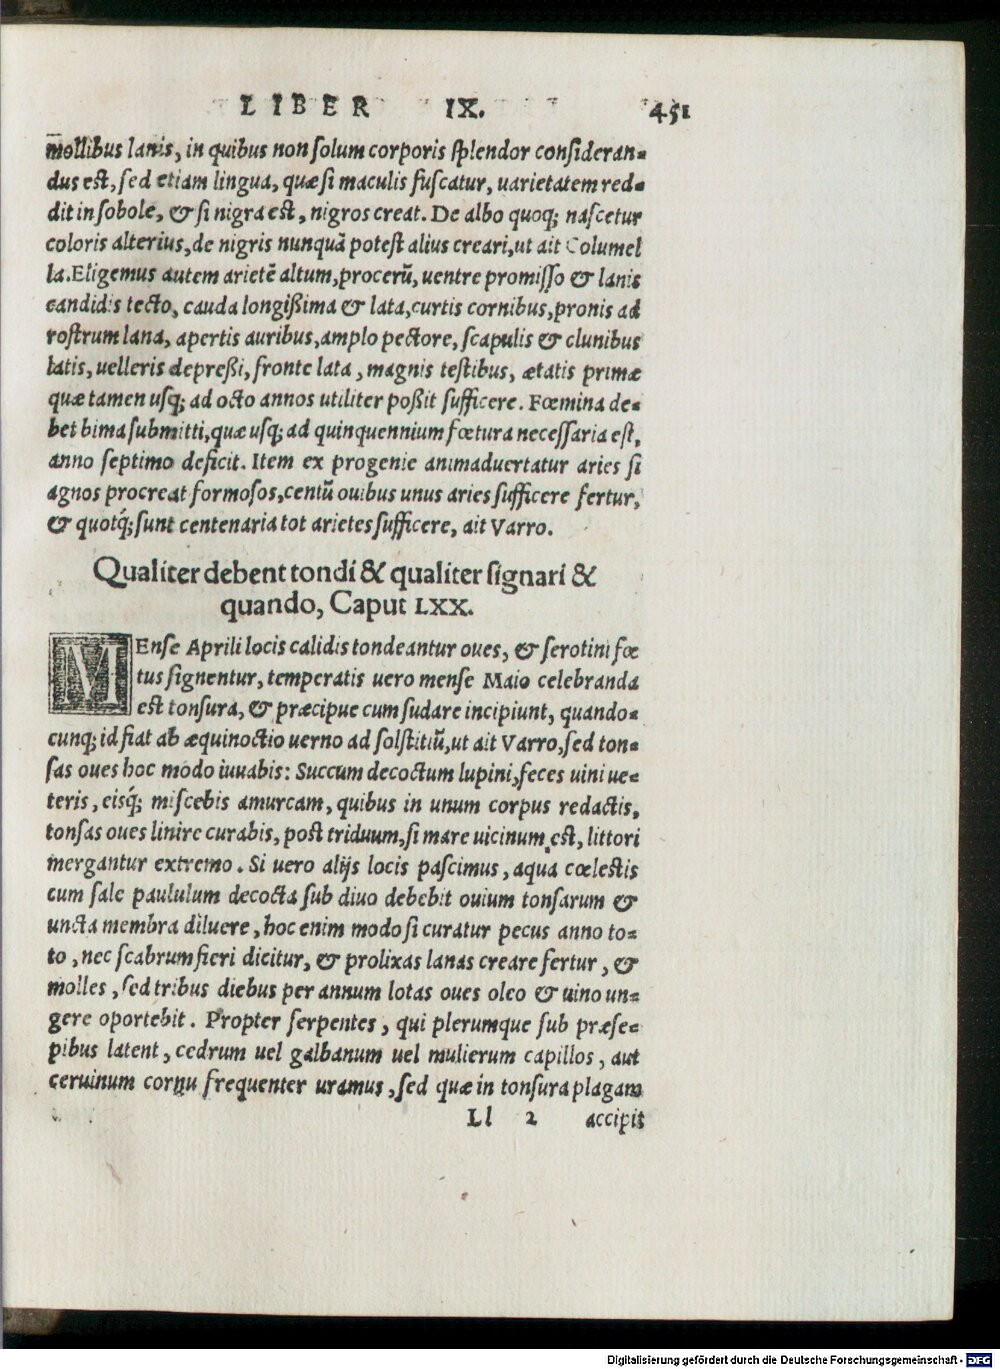 LIBER IX. 451
mollibus lanis, in quibus non solum corporis splendor consideran-
dus est, sed etiam lingua, quæ si maculis fuscatur, uarietatem red-
dit in sobole, & si nigra est, nigros creat. De albo quoq; nascetur
coloris alterius, de nigris nunquã potest alius creari, ut ait Columel
la. Eligemus autem arietē altum, procerū, uentre promisso & lanis
candidis tecto, cauda longißima & lata, curtis cornibus, pronis ad
rostrum lana, apertis auribus, amplo pectore, scapulis & clunibus
latis, uelleris depreßi, fronte lata, magnis testibus, ætatis primæ
quæ tamen usq; ad octo annos utiliter poßit sufficere. Fœmina de-
bet bima submitti, quæ usq; ad quinquennium fœtura necessaria est,
anno septimo deficit. Item ex progenie animaduertatur aries si
agnos procreat formosos, centū ouibus unus aries sufficere fertur,
& quotq́; sunt centenaria tot arietes sufficere, ait Varro.
Qualiter debent tondi & qualiter signari &
quando, Caput LXX.
MEnse Aprili locis calidis tondeantur oues, & serotini fœ
tus signentur, temperatis uero mense Maio celebranda
est tonsura, & præcipue cum sudare incipiunt, quando-
cunq; id fiat ab æquinoctio uerno ad solstitiū, ut ait Varro, sed ton-
sas oues hoc modo iuuabis: Succum decoctum lupini, feces uini ue-
teris, eisq́; miscebis amurcam, quibus in unum corpus redactis,
tonsas oues linire curabis, post triduum, si mare uicinum est, littori
mergantur extremo. Si uero alijs locis pascimus, aqua cœlestis
cum sale paululum decocta sub diuo debebit ouium tonsarum &
uncta membra diluere, hoc enim modo si curatur pecus anno to-
to, nec scabrum fieri dicitur, & prolixas lanas creare fertur, &
molles, sed tribus diebus per annum lotas oues oleo & uino un-
gere oportebit. Propter serpentes, qui plerumque sub præse-
pibus latent, cedrum uel galbanum uel mulierum capillos, aut
ceruinum cornu frequenter uramus, sed quæ in tonsura plagam
Ll 2 accipit
Digitalisierung gefördert durch die Deutsche Forschungsgemeinschaft - DFG